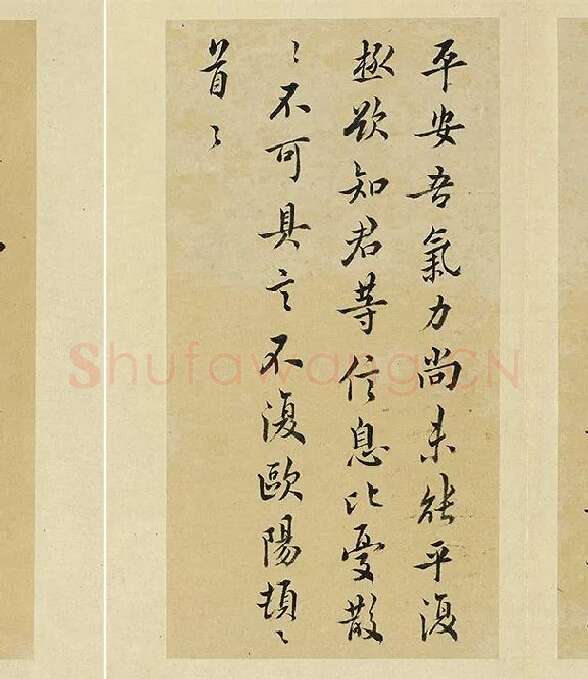 平安吾氣力尚未能平復
極欲知君等信息比憂散
〻不可具言不復歐陽頓〻
首〻
Shufawang.CN